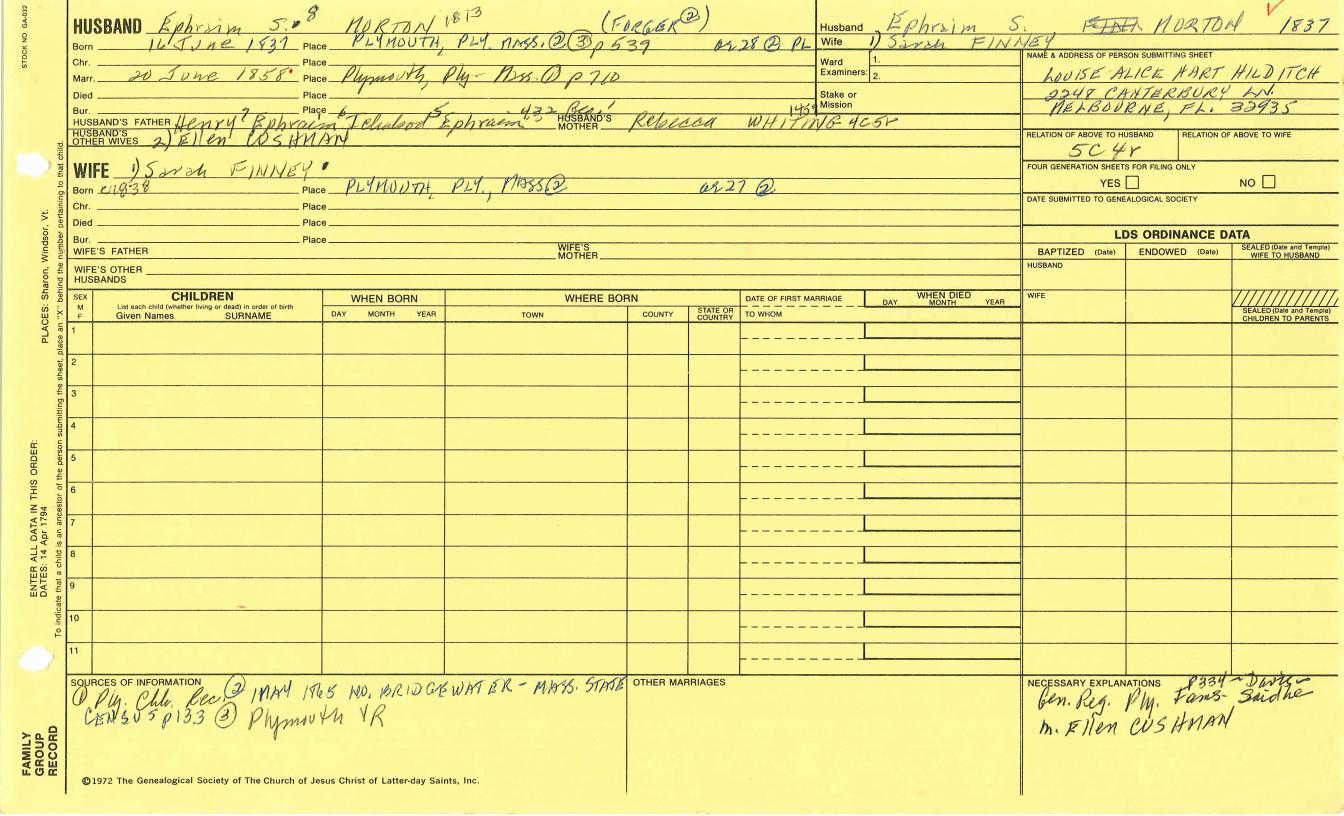 STOCK NO. GA-032
HUSBAND Ephraim S. 8 MORTON 1813 (FORGER ②)
Born 16 June 1837 Place PLYMOUTH, PLY. MASS. ② ③ p 539 ag 28 ② PL
Chr. Place
Marr. 20 June 1858 Place Plymouth, Ply- Mass. ① p 710
Died Place
Bur. Place
HUSBAND'S FATHER Henry 7 Ephraim 6 Ichabod 5 Ephraim 432 HUSBAND'S MOTHER Rebecca WHITING 4C5r
HUSBAND'S OTHER WIVES 2) Ellen CUSHMAN
WIFE 1) Sarah FINNEY
Born c1838 Place PLYMOUTH, PLY., MASS ② ag 27 ②
Chr. Place
Died Place
Bur. Place
WIFE'S FATHER WIFE'S MOTHER
WIFE'S OTHER HUSBANDS
Husband Ephraim S. MORTON 1837
Wife 1) Sarah FINNEY
Ward Examiners: 1.
2.
Stake or Mission
NAME & ADDRESS OF PERSON SUBMITTING SHEET
LOUISE ALICE HART HILDITCH
2248 CANTERBURY LN.
MELBOURNE, FL. 32935
RELATION OF ABOVE TO HUSBAND RELATION OF ABOVE TO WIFE
5C4r
FOUR GENERATION SHEETS FOR FILING ONLY
YES NO
DATE SUBMITTED TO GENEALOGICAL SOCIETY
LDS ORDINANCE DATA
BAPTIZED (Date) ENDOWED (Date) SEALED (Date and Temple) WIFE TO HUSBAND
HUSBAND
WIFE
SEALED (Date and Temple) CHILDREN TO PARENTS
SEX M F
CHILDREN
List each child (whether living or dead) in order of birth
Given Names SURNAME
WHEN BORN
DAY MONTH YEAR
WHERE BORN
TOWN COUNTY STATE OR COUNTRY
DATE OF FIRST MARRIAGE
TO WHOM
WHEN DIED
DAY MONTH YEAR
1
2
3
4
5
6
7
8
9
10
11
SOURCES OF INFORMATION
① Ply. Chh. Rec. ② 1 MAY 1865 NO. BRIDGEWATER - MASS. STATE
CENSUS p133 ③ Plymouth VR
OTHER MARRIAGES
NECESSARY EXPLANATIONS p334 - Davis -
Gen. Reg. Ply. Fams-
m. Ellen CUSHMAN
©1972 The Genealogical Society of The Church of Jesus Christ of Latter-day Saints, Inc.
FAMILY GROUP RECORD
ENTER ALL DATA IN THIS ORDER:
DATES: 14 Apr 1794
PLACES: Sharon, Windsor, Vt.
To indicate that a child is an ancestor of the person submitting the sheet, place an "X" behind the number pertaining to that child.